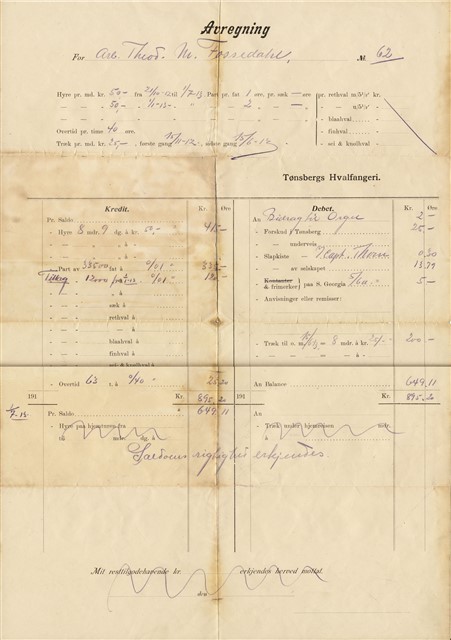 Avregning
For Arb. Theod. M. Fossedalet, № 62
Hyre pr. md. kr. 50,- fra 20/10-12 til 1/7-13 Part pr. fat 1 øre, pr. sæk — øre
— — — 50,- — 1/11-13- " — 2 —
pr. rethval m 5½" kr.
— u/5½"
— blaahval
— finhval
— sei & knølhval
Overtid pr. time 40 øre.
Træk pr. md. kr. 25,-, første gang 15/11-12, sidste gang
Tønsbergs Hvalfangeri.
Kredit. Kr. Øre
Pr. Saldo
- Hyre 8 mdr. 9 dg. à kr. 50,- 415 -
- — - — - à -
- — - — - à -
- Part av 33500 fat à 0/01 335 -
Tillæg - — - 12000 0/01 120 -
- — - à
- — - sæk à
- — - rethval à
- — - à
- — - blaahval à
- — - finhval à
- — - sei & knølhval à
- Overtid 63 t. à 0/40 25 20
191 Kr. 895 20
1/7-13 Pr. Saldo à 649 11
- Hyre paa hjemturen fra
til mdr. dg. à
Debet. Kr. Øre
An Bidrag til Orgel 2 -
- Forskud i Tønsberg 25 -
- — underveis
- Slapkiste - Capt. Thorsen 0,30
- — av selskapet 13,79
- Kontanter & frimerker paa S. Georgia 5 -
- Anvisninger eller remisser:
- Træk til u. m. = 8 mdr. à kr. 25/- 200 -
- — - — - — - à -
An Balance 649,11
191 Kr. 895,20
An
- Træk under hjemreisen mdr.
à
Saldoens rigtighet erkjendes.
Mit resttilgodehavende kr. erkjendes herved mottat.
den